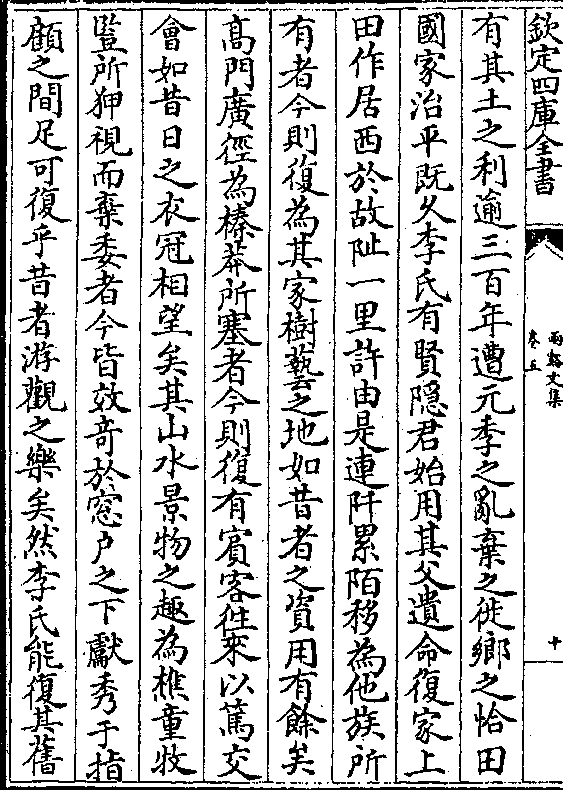 欽定四庫全書
兩谿文集
卷五
十
有其土之利逾三百年遭元季之亂棄之徙鄉之恰田
國家治平既久李氏有賢隱君始用其父遺命復家上
田作居西於故阯一里許由是連阡累陌移為他族所
有者今則復為其家樹藝之地如昔者之資用有餘矣
髙門廣徑為榛莽所塞者今則復有賓客徃來以篤交
會如昔日之衣冠相望矣其山水景物之趣為樵童牧
豎所狎視而棄委者今皆效竒於窓户之下獻秀于指
顧之間足可復乎昔者游觀之樂矣然李氏能復其舊